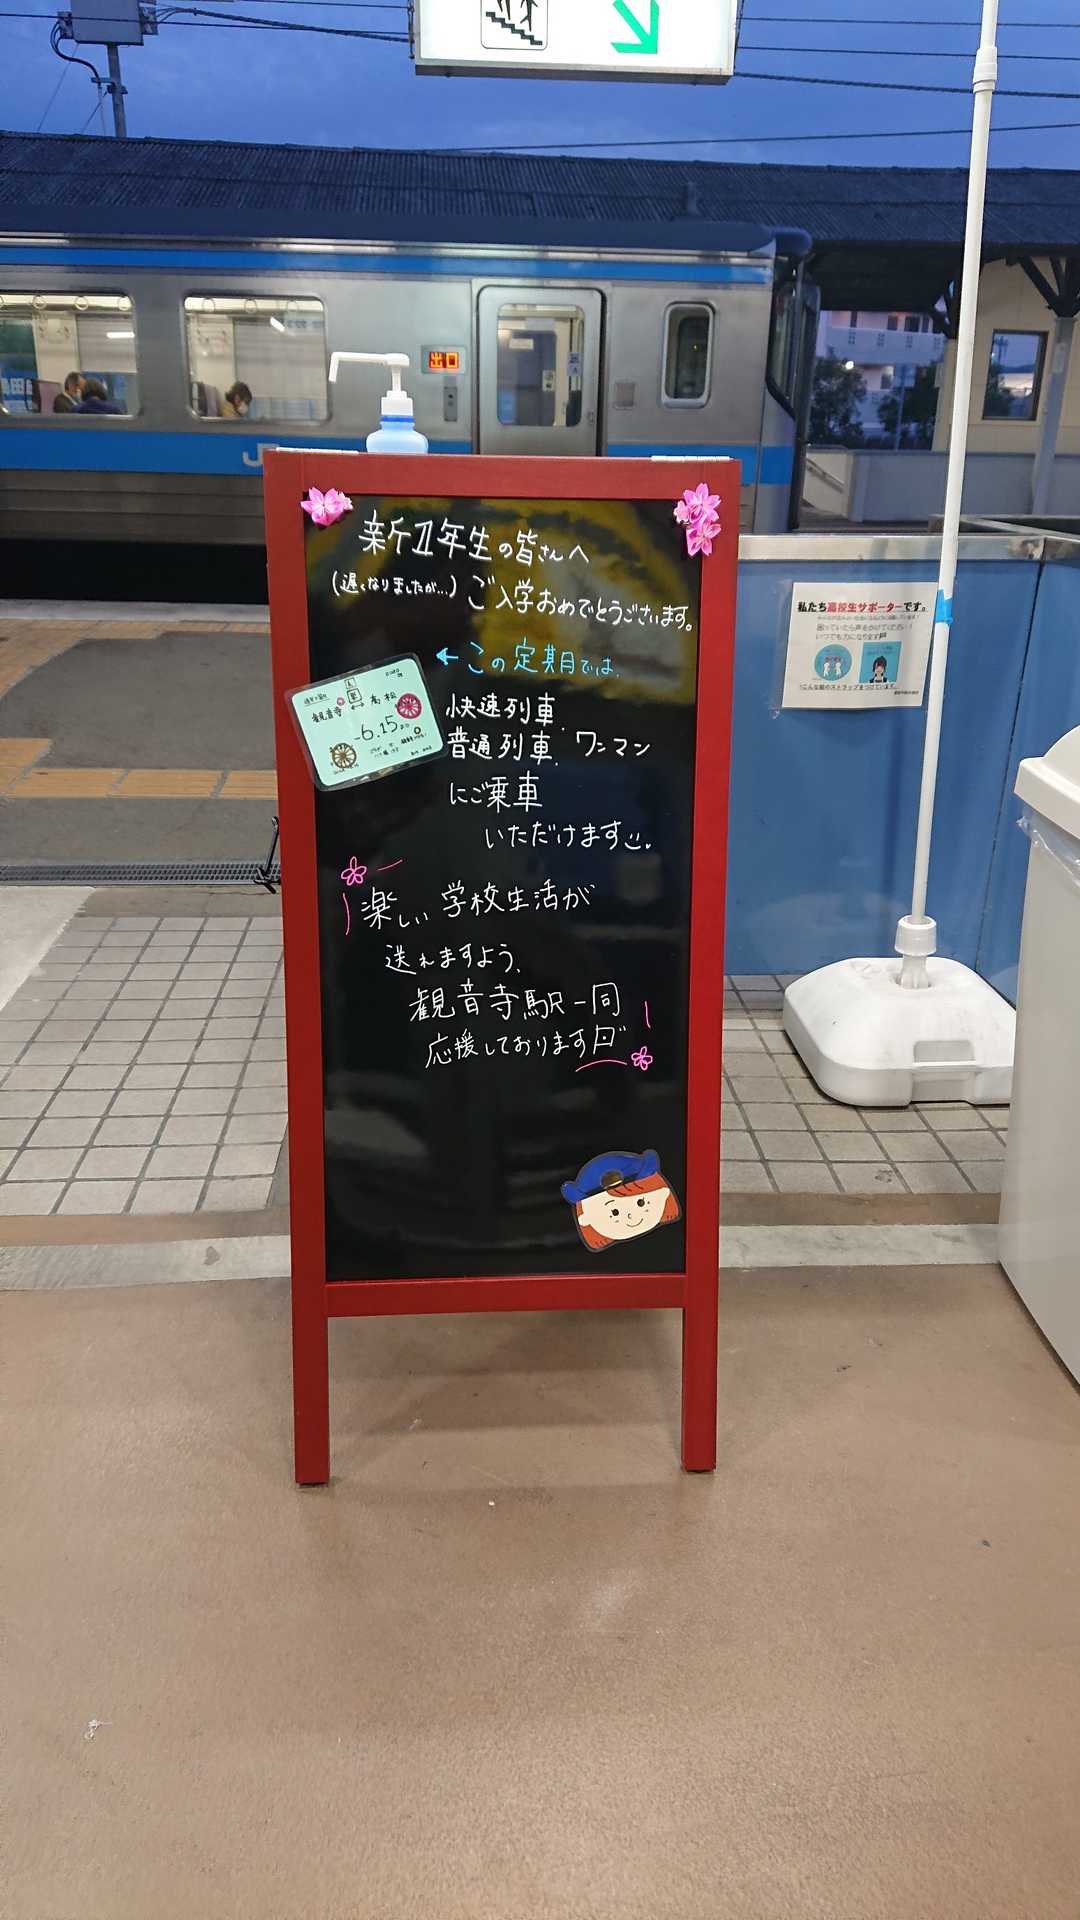 出口
J
新1年生の皆さんへ
(遅くなりましたが…)ご入学おめでとうございます。
←この定期では、
観音寺 ↔ 高松
-6.15
快速列車、
普通列車、ワンマン
にご乗車
いただけます
楽しい学校生活が
送れますよう、
観音寺駅一同
応援しております
私たち高校生サポーターです。
困っていたら声をかけてください!
いつでも力になります